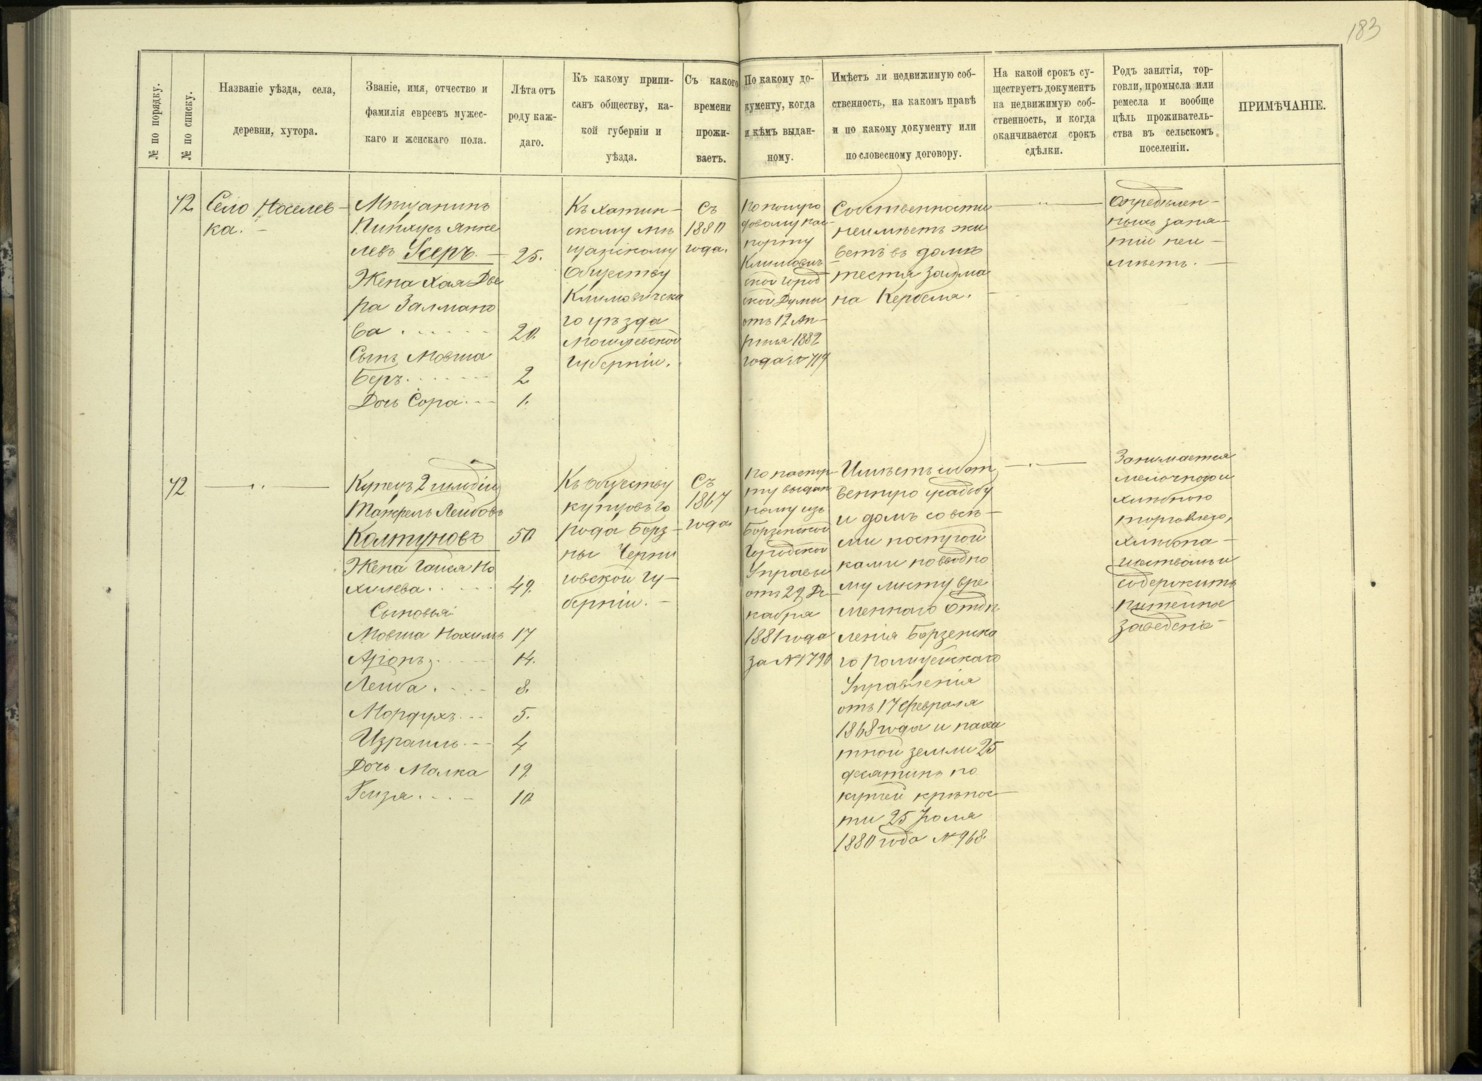 183
№ по порядку.
№ по списку.
Названіе уѣзда, села,
деревни, хутора.
Званіе, имя, отчество и
фамилія евреевъ мужес-
каго и женскаго пола.
Лѣта отъ
роду каж-
даго.
Къ какому припи-
санъ обществу, ка-
кой губерніи и
уѣзда.
Съ какого
времени
прожи-
ваетъ.
По какому до-
кументу, когда
и кѣмъ выдан-
ному.
Имѣетъ ли недвижимую соб-
ственность, на какомъ правѣ
и по какому документу или
по словесному договору.
На какой срокъ су-
ществуетъ документъ
на недвижимую соб-
ственность, и когда
оканчивается срокъ
сдѣлки.
Родъ занятія, тор-
говли, промысла или
ремесла и вообще
цѣль проживатель-
ства въ сельскомъ
поселеніи.
ПРИМѢЧАНІЕ.
72
Село Носелев-
ка.
Мѣщанинъ
Пинхусъ Янке
левъ Усеръ
25.
Жена Хая Две
ра Залмано
ва
20.
Сынъ Мовша
Беръ
2
Дочь Сора
1.
Къ Хатин-
скому мѣ
щанскому
Обществу
Климовичска
го уѣзда
Могилевской
Губерніи.
Съ
1880
года.
порту
Климович-
ской Город
ской Думы
отъ 12 Ап-
рѣля 1882
года № 717
Собственности
неимѣетъ жи
ветъ въ домѣ
тестя Залма
на Кербеля.
Опредѣлен-
ныхъ заня-
тій неи-
мѣетъ.
72
Купецъ 2 гильдіи
Лейбовъ
Колтуновъ
50
Жена Но
химева
49.
Сыновья
Мовша Нохимъ 17
Аріонъ
14.
Лейба
8.
Мордухъ
5.
Израиль
4
Дочь Малка
19
Гензя
10
Къ обществу
купцовъ го
рода Борз-
ны Черни
говской гу-
берніи.
Съ
1867
года
По паспор-
ту выдан
ному изъ
Борзенской
Городской
Управы
отъ 29 Де-
кабря
1881 года
за № 1790
Имѣетъ собст
венную усадьбу
и домъ со всѣ-
ми построй
ками по вводно
му листу вре
менного Отдѣ
ленія Борзенска
го Полицейскаго
Управленія
отъ 17 февраля
1868 года и паха
тной земли 25
десятинъ по
купчей крѣпос-
ти 25 Іюля
1880 года № 968.
Занимается
мелочною и
хлѣбною
торговлею,
хлѣбопа-
шествомъ и
содержитъ
питейное
заведенъ-